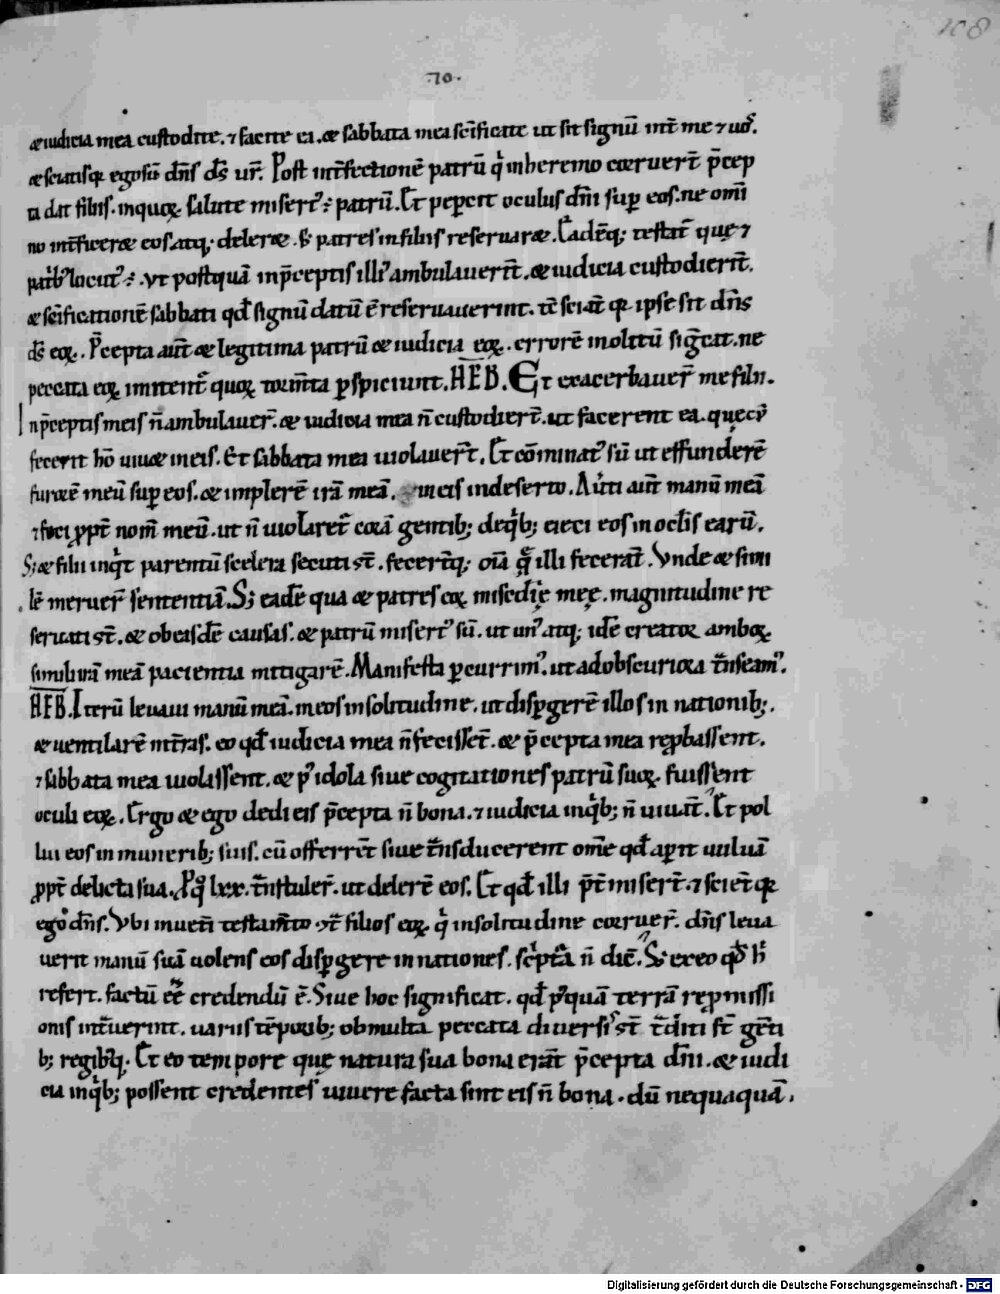 108
·70·
& iudicia mea custodite. ⁊ facite ea. & sabbata mea sc̄ificate ut sit signū int̄ me ⁊ uos.
& sciatisq; ego sū dn̄s ds̄ ur̄. Post int̄fectionē patrū q̇ in heremo corruer̄t p̄cep
ta dat filiis. in quoꝝ salute misert᷒ patrū. Et pepercit oculus dn̄i sup eos. ne om̄i
no int̄ficer& eos. atq; deler&. s; patres in filiis reseruar&.
patrib᷒ locut᷒ ÷. ut postquā in p̄ceptis illi᷒ ambulauerīt. & iudicia custodierīt.
& sc̄ificationē sabbati qd̄ signū datū ē reseruauerint. tc̄ sciāt q; ipse sit dn̄s
ds̄ eoꝝ. P̄cepta aut̄ & legitima patrū & iudicia eoꝝ. errorē inolitū sig̅cat. ne
peccata eoꝝ imitent᷒ quoꝝ torm̄ta p̱spiciunt. HEB. Et exacerbauer̄ me filii.
In p̄ceptis meis n̄ ambulauer̄. & iudicia mea n̄ custodier̄t. ut facerent ea. quę cū
fecerit hō uiu& in eis. Et sabbata mea uiolauer̄t. Et cōminat᷒ sū ut effunderē
furorē meū sup eos. & implerē irā meā. in eis in deserto. Auti aut̄ manū meā
⁊ feci ꝓpt̄ nom̄ meū. ut n̄ uiolaret̄ corā gentib; de qb; eieci eos in oclis earū.
S; & filii inqt parentū scelera secuti st̄. fecer̄tq; oīa q̄ illi fecerāt. Vnde & simi
lē meruer̄ sententiā. S; eadē qua & patres eoꝝ misc̄dię męę. magnitudine re
seruati st̄. & ob easdē causas. & patrū misert᷒ sū. ut un᷒ atq; idē creator amboꝝ
simili irā meā pacientia mitigarē. Manifesta p̱currim᷒. ut ad obscuriora t̄nseam᷒.
HEB. Iterū leuaui manū meā. in eos in solitudine. ut disp̱gerē illos in nationib;.
& uentilarē in t̄ras. eo qd̄ iudicia mea n̄ fecissēt. & p̄cepta mea reꝓbassent.
⁊ sabbata mea uiolassent. & p᷒ idola siue cogitationes patrū suoꝝ. fuissent
oculi eoꝝ. Ergo & ego dedi eis p̄cepta n̄ bona. ⁊ iudicia in qb; n̄ uiuāt. Et pol
lui eos in munerib; suis. cū offerrēt siue t̄nsducerent om̄e qd̄ ap̱it uuluā
ꝓpt̄ delicta sua. Pq̄ lxx. t̄nstuler̄. ut delerē eos. Et qd̄ illi p̄t̄miser̄t. ⁊ sciētq;
ego dn̄s. Vbi inuen̄ testam̄to filios eoꝝ. q̇ in solitudine corruer̄. dn̄s leua
uerit manū suā uolens eos disp̱gere in nationes. sc̄pt̄a n̄ dic̄. S; ex eo qd̄ h᷒
refert. factū ēē credendū ē. Siue hoc significat. qd̄ p᷒quā terrā reꝓmissi
onis int̄uerint. uariis tēporib; ob multa peccata diuersis t̄diti st̄ gēti
b; regibq;. Et eo tempore quę natura sua bona erāt p̄cepta dn̄i. & iudi
cia in qb; possent credentes uiuere facta sint eis n̄ bona. dū nequaquā.
Digitalisierung gefördert durch die Deutsche Forschungsgemeinschaft - DFG